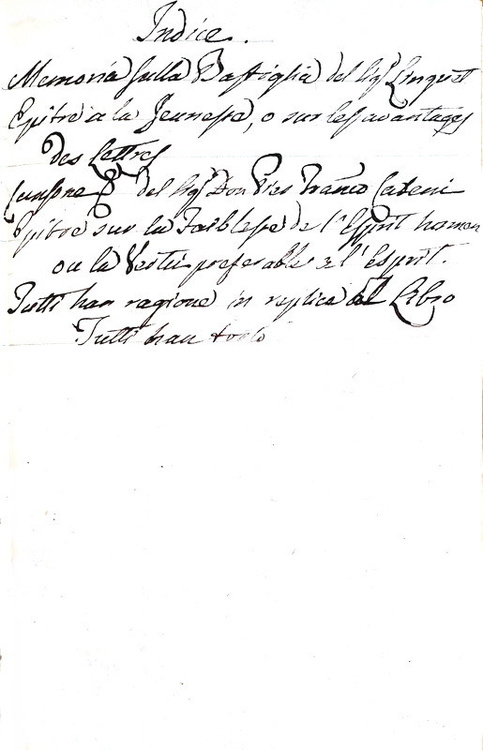 Indice.
Memoria sulla Bastiglia del Sigr Linguet
Epitre a la Jeunesse, o sur les avantages
des Lettres
Canzone del Sigr Don Pier Franco Cateni
Epitre sur la Foiblesse de l'Esprit humain
ou la Vertu preferable a l'Esprit.
Tutti han ragione in replica al Libro
Tutti han torto